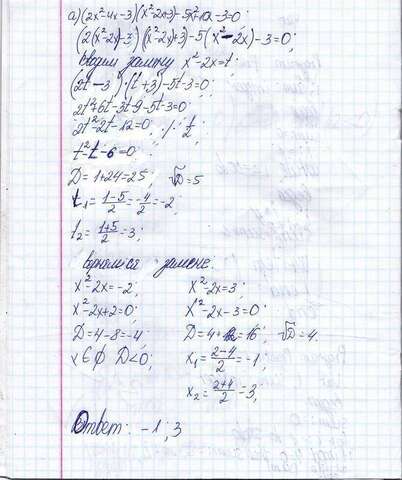 а) (2x²-4x-3)(x²-2x+3)-5x²+10x-3=0
(2(x²-2x)-3)(x²-2x)+3)-5(x²-2x)-3=0;
вводим замену x²-2x=t;
(2t-3)·(t+3)-5t-3=0;
2t²+6t-3t-9-5t-3=0
2t²-2t-12=0; /:2;
t²-t-6=0;
D=1+24=25; √D=5
t₁=(1-5)/2=-4/2=-2;
t₂=(1+5)/2=3;
замене:
x²-2x=-2; x²-2x=3;
x²-2x+2=0; x²-2x-3=0;
D=4-8=-4; D=4+12=16; √D=4.
x∈∅ D<0; x₁=(2-4)/2=-1;
x₂=(2+4)/2=3;
Ответ: -1; 3